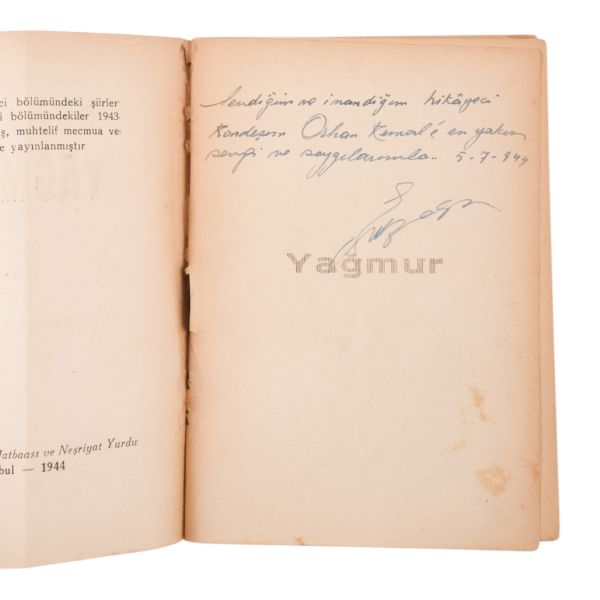 ci bölümündeki şiirler
i bölümündekiler 1943
ş, muhtelif mecmua ve
e yayınlanmıştır
Matbaası ve Neşriyat Yurdu
bul — 1944
Sevdiğim ve inandığım hikâyeci
kardeşim Orhan Kemal'e en yakın
sevgi ve saygılarımla.. 5.7.944
Yağmur